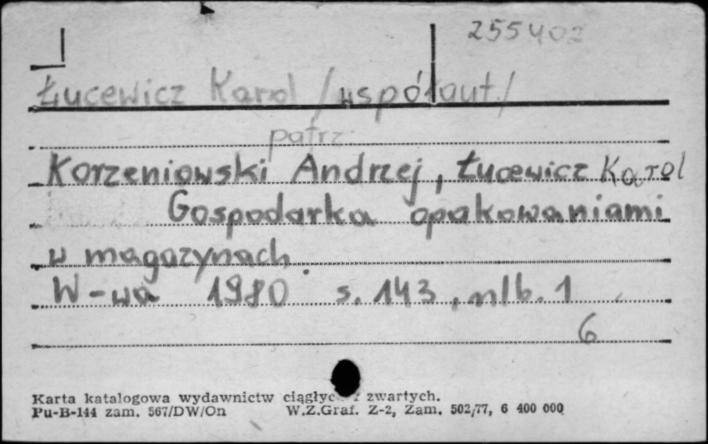 255402
Łucewicz Karol /współaut./
patrz
Korzeniowski Andrzej, Łucewicz Karol
Gospodarka opakowaniami
w magazynach.
W-wa 1980 s. 143, nlb. 1
6
Karta katalogowa wydawnictw ciągłych i zwartych.
Pu-B-144 zam. 567/DW/On W.Z.Graf. Z-2, Zam. 502/77, 6 400 000